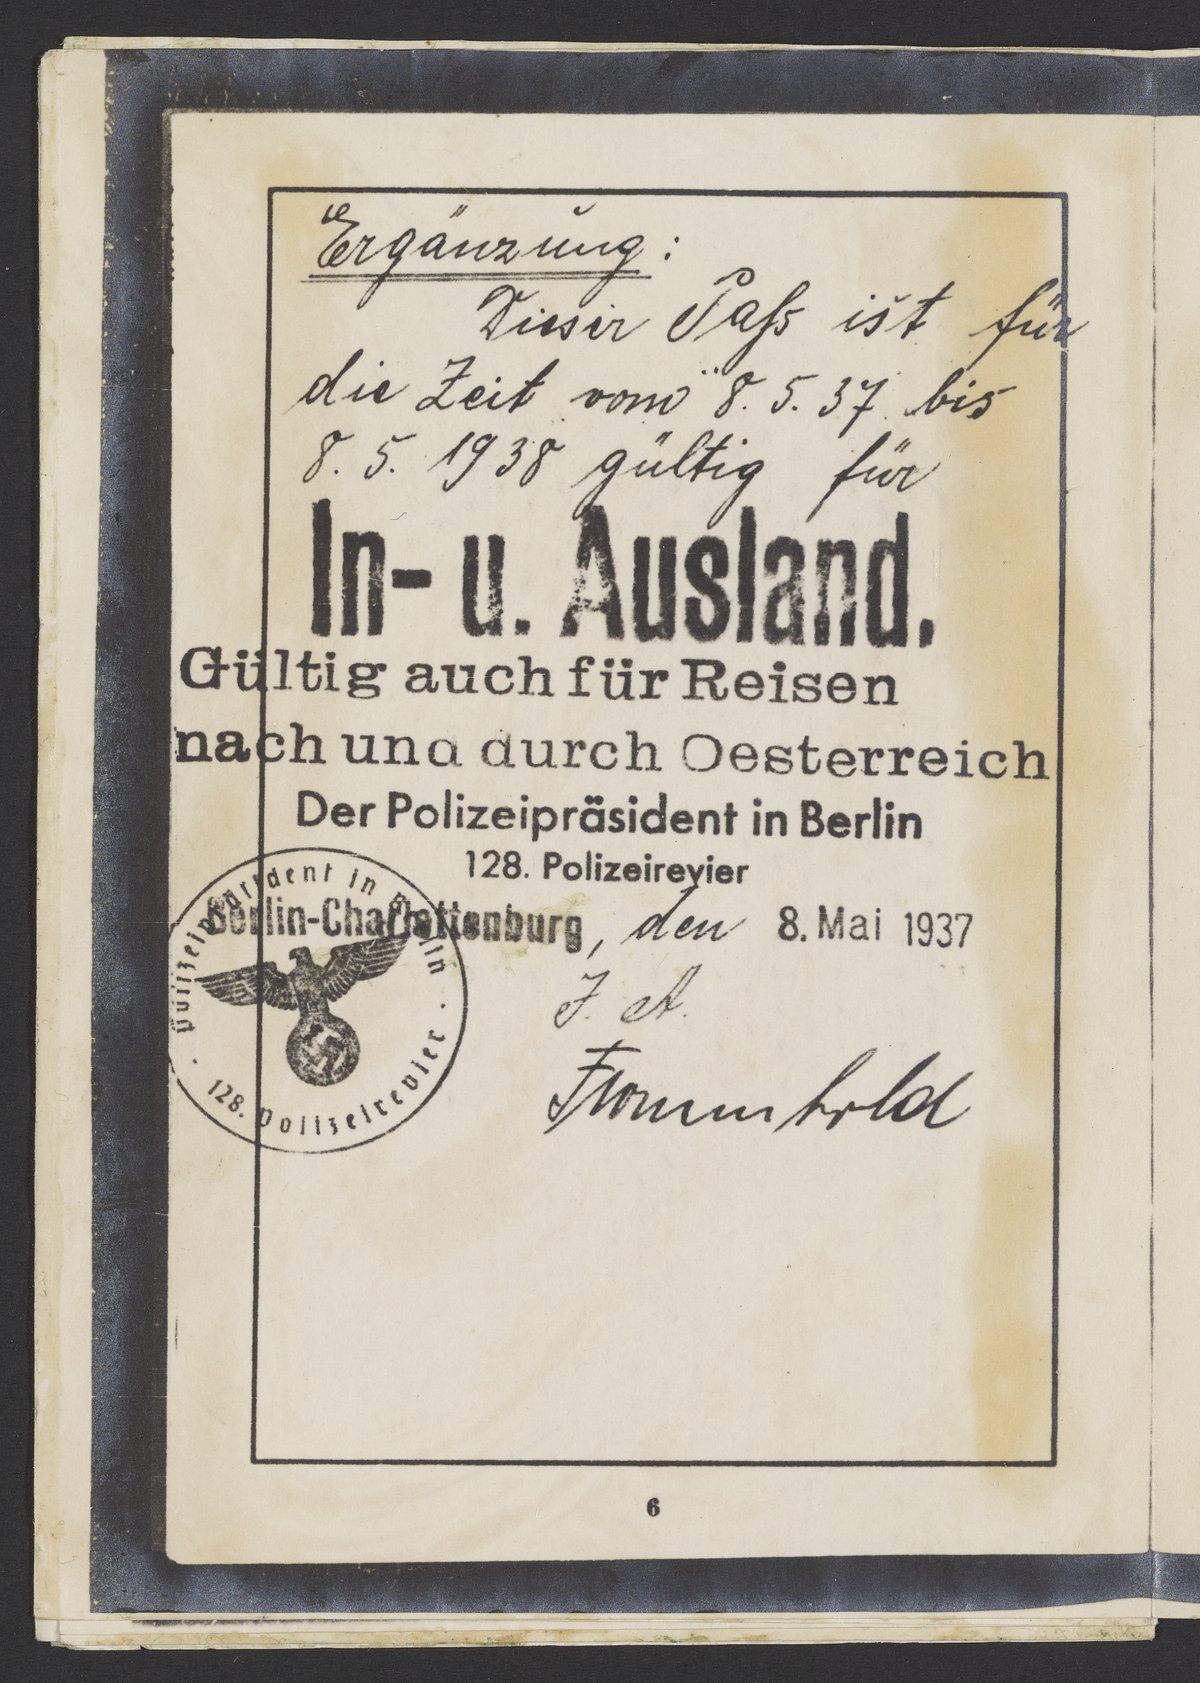 Ergänzung:
Dieser Paſs ist für
die Zeit vom 8. 5. 37 bis
8. 5. 1938 gültig für
In- u. Ausland.
Gültig auch für Reisen
nach und durch Oesterreich
Der Polizeipräsident in Berlin
128. Polizeirevier
Berlin-Charlottenburg, den 8. Mai 1937
Polizeipräsident in Berlin
· 128. Polizeirevier ·
I. A.
6